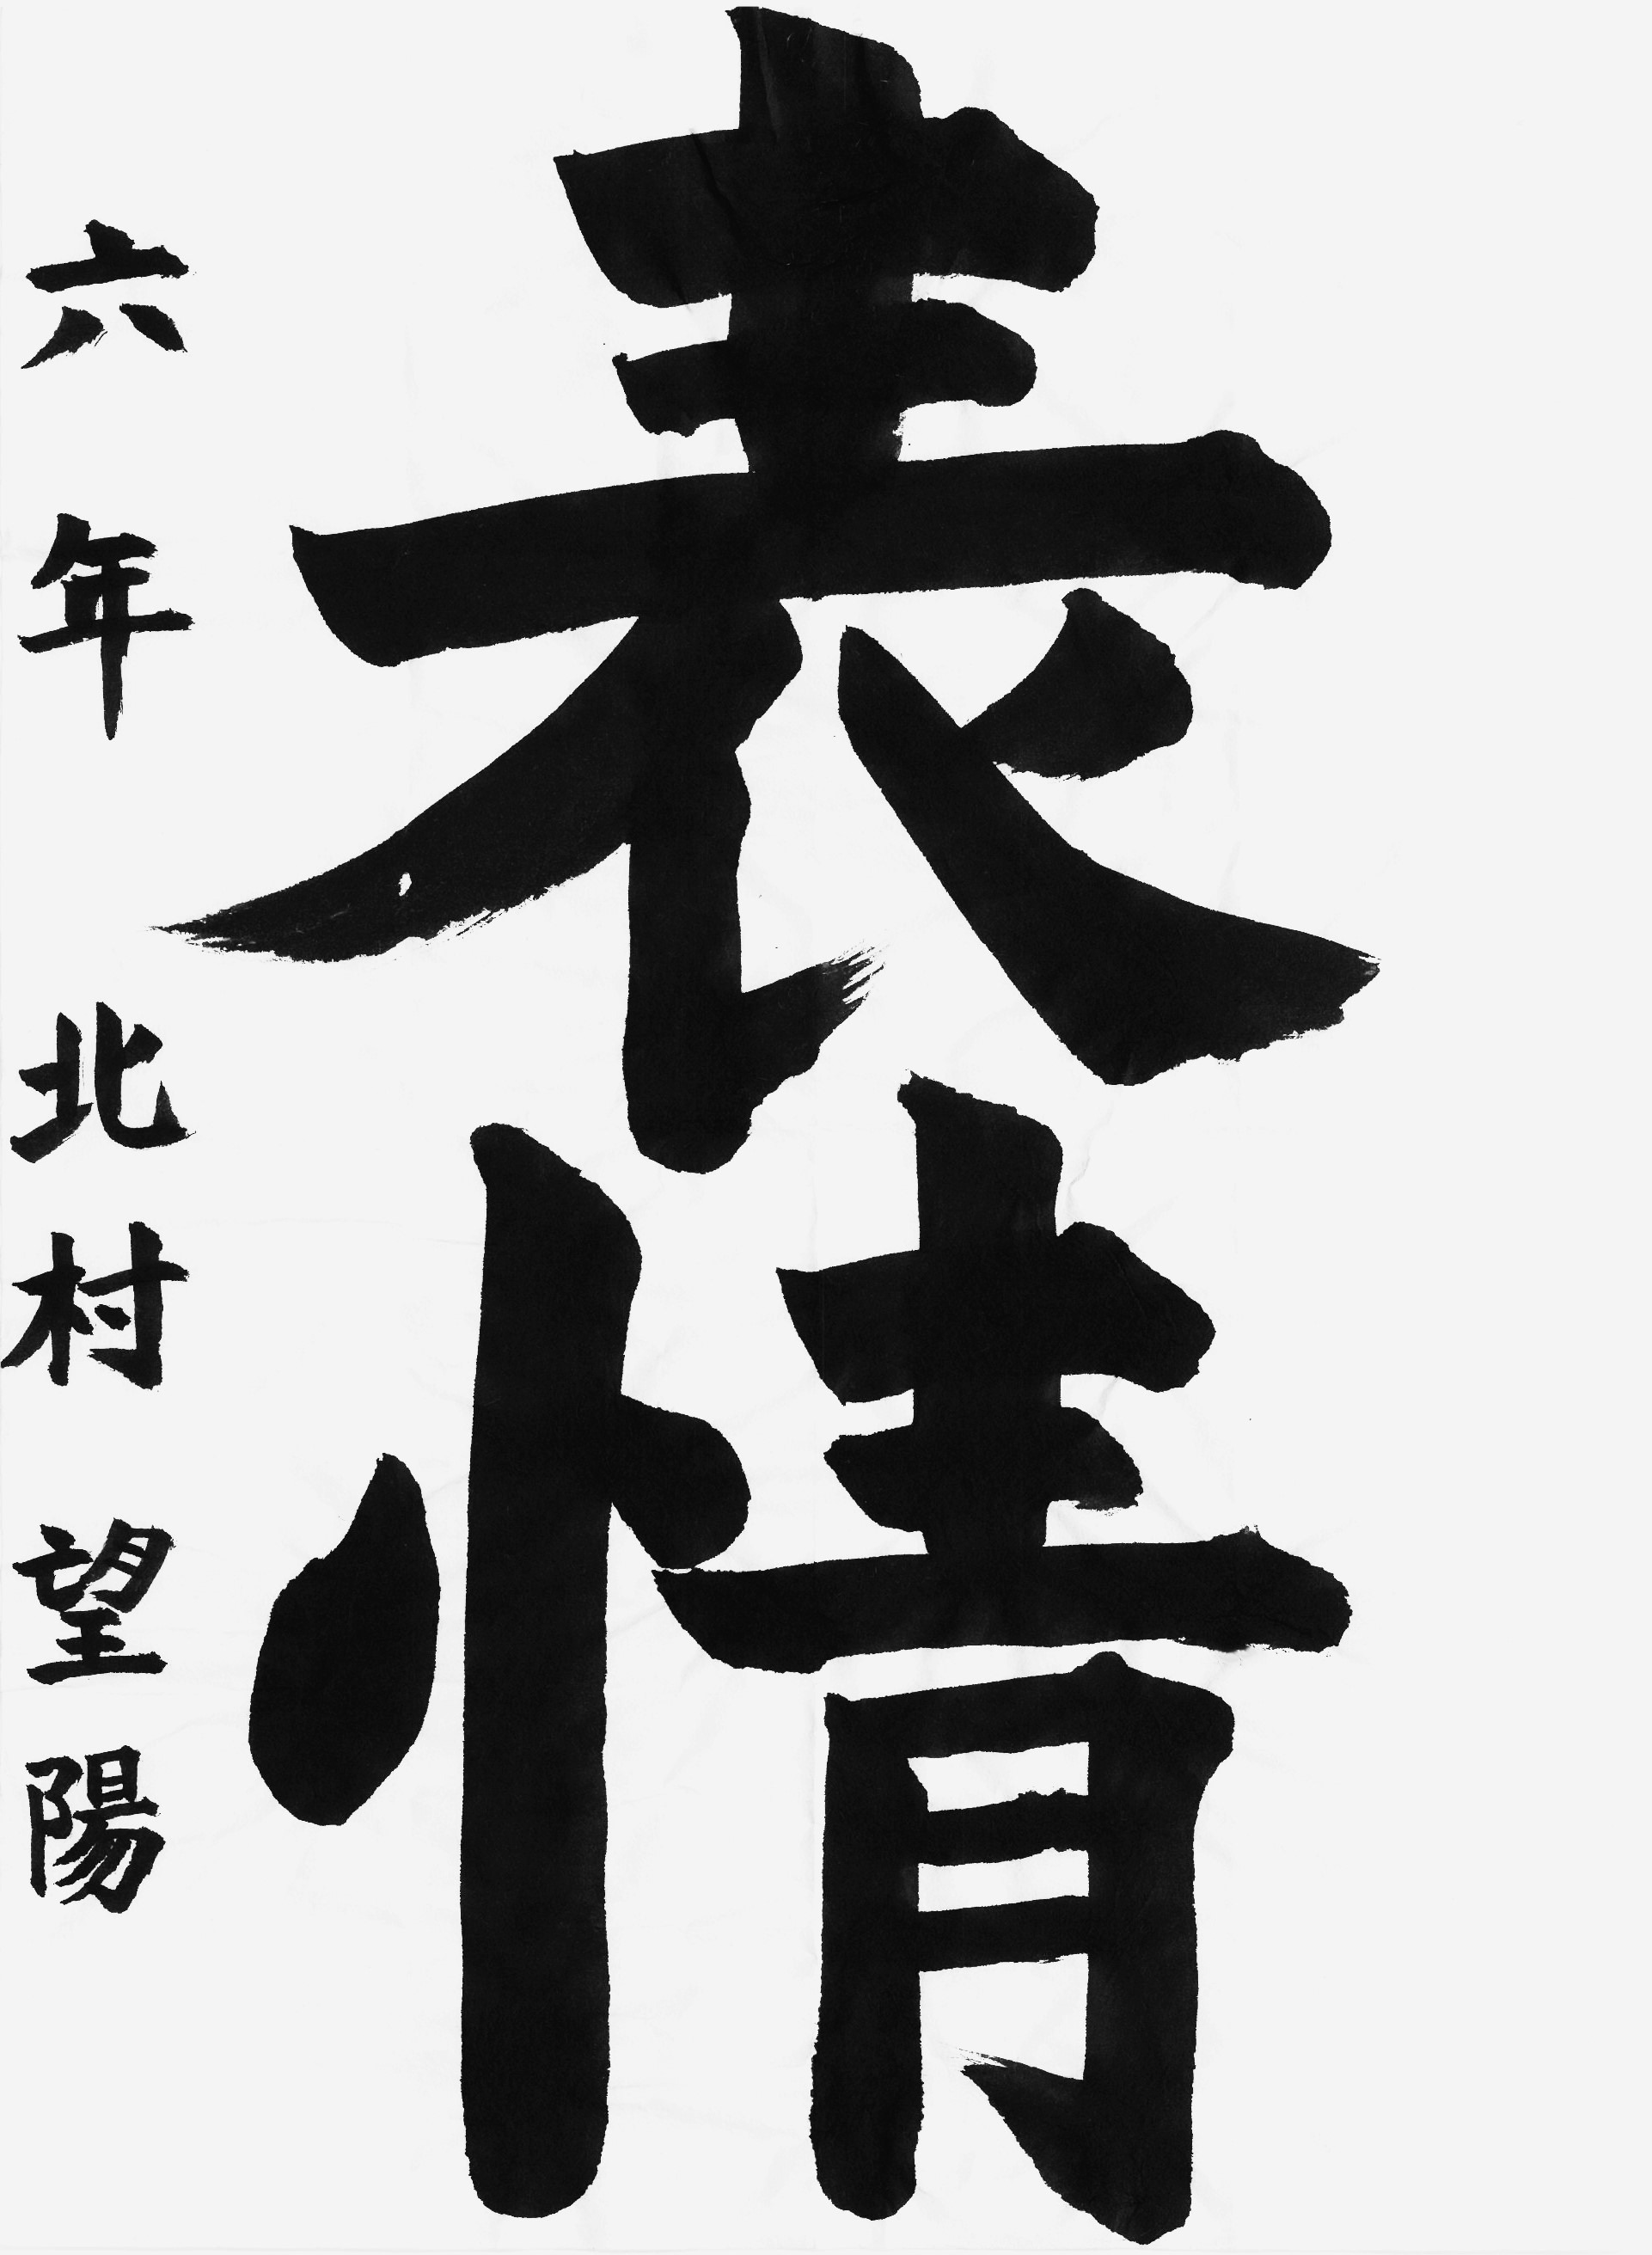 表情
六年 北村望陽